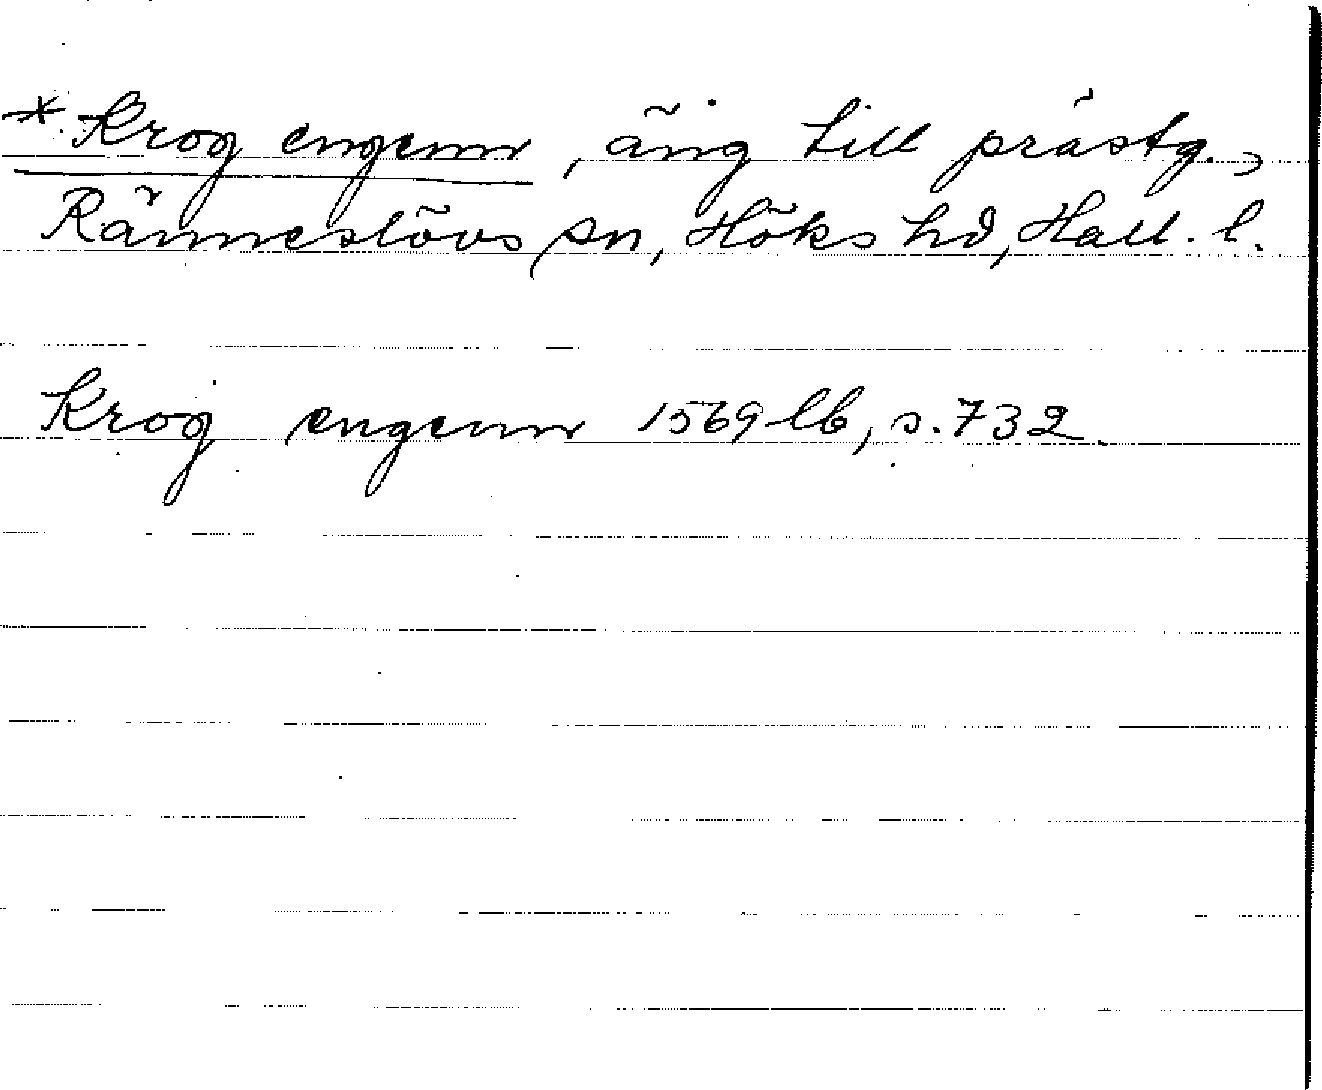 *Krog engenn, äng till prästg.,
Ränneslövs sn, Höks hd, Hall. l.
Krog engenn 1569 lb, s. 732.